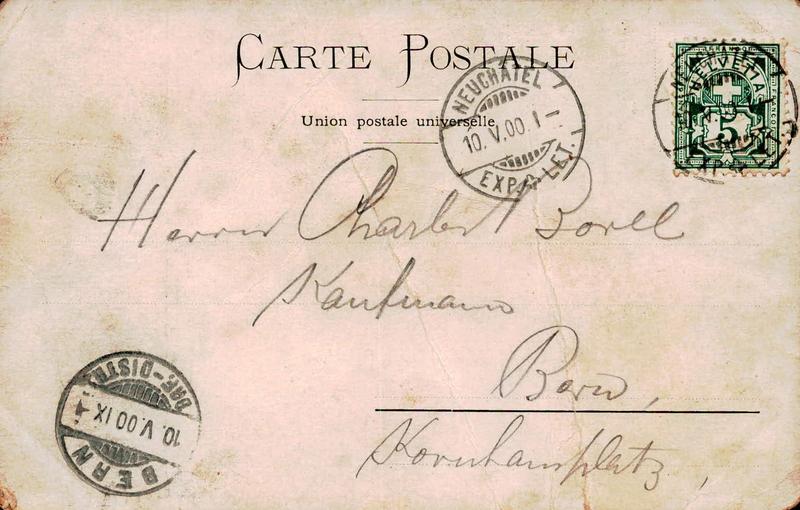 CARTE POSTALE
Union postale universelle
NEUCHATEL
10.V.00.I–
EXP. LET.
HELVETIA
FRANCO
5
Herrn Charles Borel
Kaufmann
Bern,
Kornhausplatz,
BERN
10.V.00 IX
BRF-DISTR.